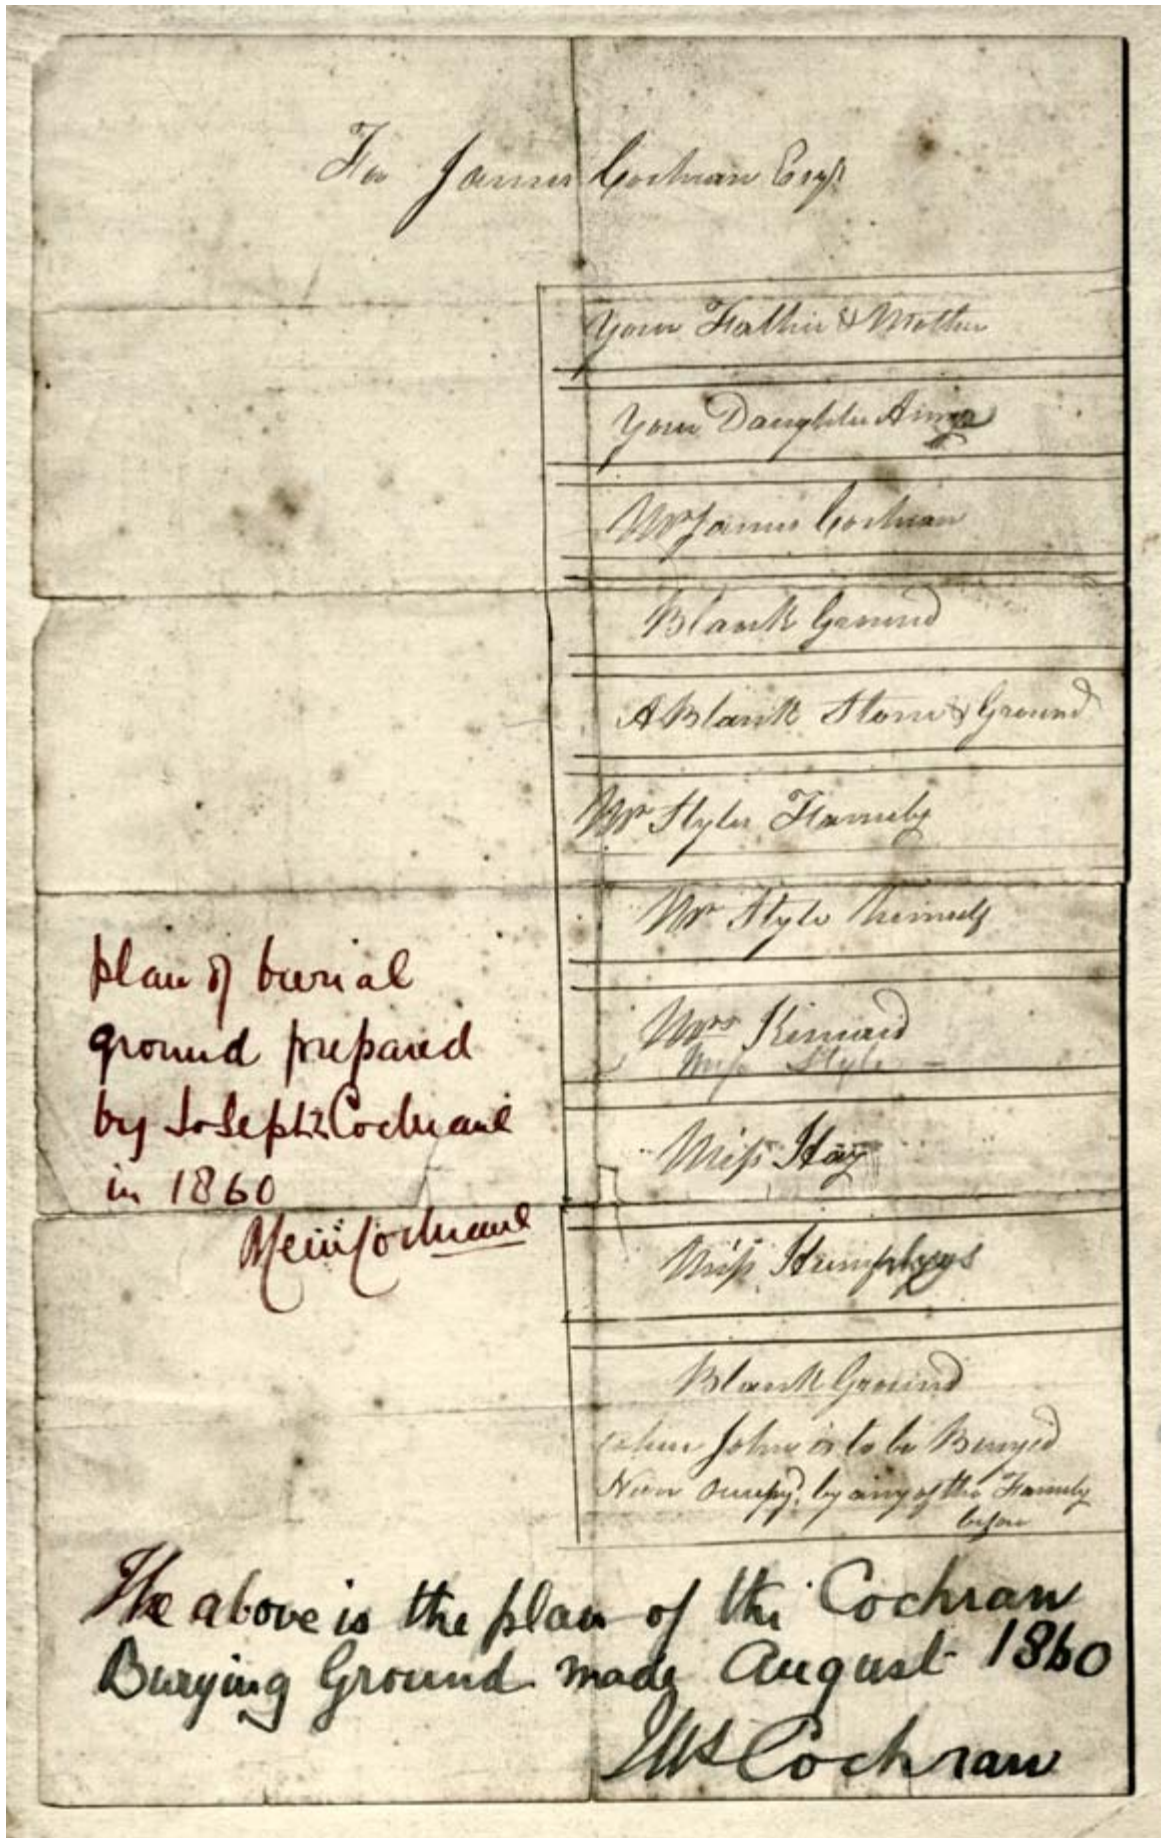 For James Cochran Esqr
Your Father & Mother
Your Daughter
Mr James Cochran
Blank Ground
A Blank Stone & Ground
Mr Styles Famely
Mr Style himself
Mrs Kinnaird
Miss Style
Miss Hay
Miss Humphreys
Blank Ground
John is to be Burryed
by any of the Famely
before
plan of burial
ground prepared
by Joseph Cochrane
in 1860
Cochrane
The above is the plan of the Cochran
Burying Ground made August 1860
Cochran